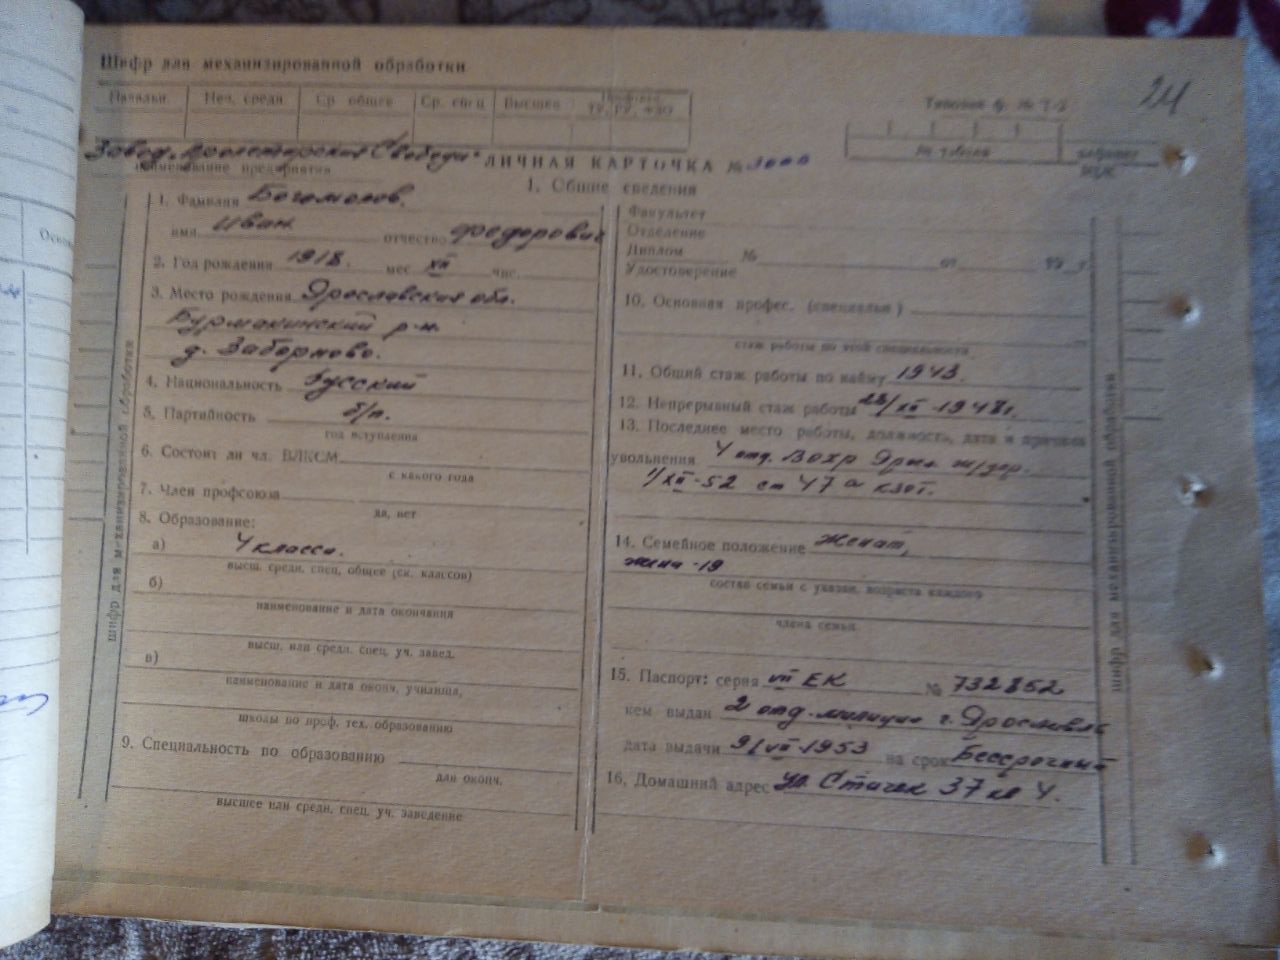 24
Шифр для механизированной обработки
Начальн. Неп. средн Ср. общее Ср. спец Высшее ТУ, РУ, ФЗО
Типовая ф. № Т-2
№ табеля алфавит
Завод "Пролетарская Свобода" ЛИЧНАЯ КАРТОЧКА №
наименование предприятия
1. Общие сведения
1. Фамилия Богомолов.
имя Иван отчество Федорович
2. Год рождения 1918. мес XII чис.
3. Место рождения Ярославская обл.
Бурмакинский р-н.
д. Заборново.
4. Национальность Русский
5. Партийность б/п.
год вступления
6. Состоит ли чл. ВЛКСМ
с какого года
7. Член профсоюза
да, нет
8. Образование:
а) 4 класса.
высш. средн. спец. общее (ск. классов)
б)
наименование и дата окончания
высш. или средн. спец. уч. завед.
в)
наименование и дата оконч. училища,
школы по проф. тех. образованию
9. Специальность по образованию
дан оконч.
высшее или средн. спец. уч. заведение
Факультет
Отделение
Диплом № от 19 г.
Удостоверение
10. Основная профес. (специальн)
стаж работы по этой специальности
11. Общий стаж работы по найму 1943.
12. Непрерывный стаж работы XII-1948г.
13. Последнее место работы, должность, дата и причина
увольнения 4 отд. Вохр Яросл. ж/дор.
1/XII-52 ст 47 а кзот.
14. Семейное положение женат,
жена -19
состав семьи с указан. возраста каждого
члена семьи
15. Паспорт: серия VII ЕК № 732852
кем выдан 2 отд. милиции г. Ярославль
дата выдачи 9/VII-1953 на срок Бессрочный
16. Домашний адрес ул Стачек 37 кв 4.
шифр для механизированной обработки
шифр для механизированной обработки